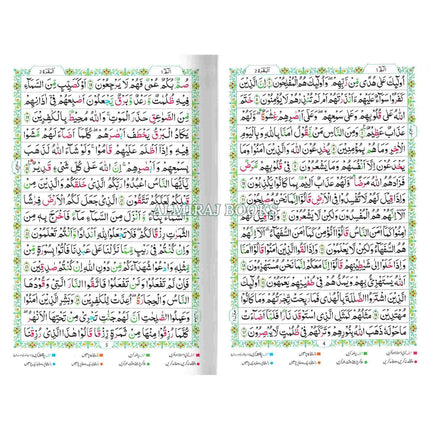 البقرة ٢
الٓمّٓ ١
اُولٰٓئِكَ عَلٰى هُدًى مِّنْ رَّبِّهِمْ وَاُولٰٓئِكَ هُمُ الْمُفْلِحُوْنَ اِنَّ الَّذِيْنَ
كَفَرُوْا سَوَآءٌ عَلَيْهِمْ ءَاَنْذَرْتَهُمْ اَمْ لَمْ تُنْذِرْهُمْ لَا يُؤْمِنُوْنَ خَتَمَ
اللّٰهُ عَلٰى قُلُوْبِهِمْ وَعَلٰى سَمْعِهِمْ وَعَلٰٓى اَبْصَارِهِمْ غِشَاوَةٌ وَّلَهُمْ
عَذَابٌ عَظِيْمٌ وَمِنَ النَّاسِ مَنْ يَّقُوْلُ اٰمَنَّا بِاللّٰهِ وَبِالْيَوْمِ
الْاٰخِرِ وَمَا هُمْ بِمُؤْمِنِيْنَ يُخٰدِعُوْنَ اللّٰهَ وَالَّذِيْنَ اٰمَنُوْا وَمَا
يَخْدَعُوْنَ اِلَّآ اَنْفُسَهُمْ وَمَا يَشْعُرُوْنَ فِيْ قُلُوْبِهِمْ مَّرَضٌ
فَزَادَهُمُ اللّٰهُ مَرَضًا وَلَهُمْ عَذَابٌ اَلِيْمٌ بِمَا كَانُوْا يَكْذِبُوْنَ
وَاِذَا قِيْلَ لَهُمْ لَا تُفْسِدُوْا فِي الْاَرْضِ قَالُوْٓا اِنَّمَا نَحْنُ مُصْلِحُوْنَ
اَلَآ اِنَّهُمْ هُمُ الْمُفْسِدُوْنَ وَلٰكِنْ لَّا يَشْعُرُوْنَ وَاِذَا قِيْلَ
لَهُمْ اٰمِنُوْا كَمَآ اٰمَنَ النَّاسُ قَالُوْٓا اَنُؤْمِنُ كَمَآ اٰمَنَ السُّفَهَآءُ
اَلَآ اِنَّهُمْ هُمُ السُّفَهَآءُ وَلٰكِنْ لَّا يَعْلَمُوْنَ وَاِذَا لَقُوا الَّذِيْنَ اٰمَنُوْا قَالُوْٓا اٰمَنَّا
وَاِذَا خَلَوْا اِلٰى شَيٰطِيْنِهِمْ قَالُوْٓا اِنَّا مَعَكُمْ اِنَّمَا نَحْنُ مُسْتَهْزِءُوْنَ
اَللّٰهُ يَسْتَهْزِئُ بِهِمْ وَيَمُدُّهُمْ فِيْ طُغْيَانِهِمْ يَعْمَهُوْنَ اُولٰٓئِكَ
الَّذِيْنَ اشْتَرَوُا الضَّلٰلَةَ بِالْهُدٰى فَمَا رَبِحَتْ تِّجَارَتُهُمْ وَمَا كَانُوْا
مُهْتَدِيْنَ مَثَلُهُمْ كَمَثَلِ الَّذِي اسْتَوْقَدَ نَارًا فَلَمَّآ اَضَآءَتْ
مَا حَوْلَهٗ ذَهَبَ اللّٰهُ بِنُوْرِهِمْ وَتَرَكَهُمْ فِيْ ظُلُمٰتٍ لَّا يُبْصِرُوْنَ
4
البقرة ٢
الٓمّٓ ١
صُمٌّۢ بُكْمٌ عُمْيٌ فَهُمْ لَا يَرْجِعُوْنَ اَوْ كَصَيِّبٍ مِّنَ السَّمَآءِ
فِيْهِ ظُلُمٰتٌ وَّرَعْدٌ وَّبَرْقٌ يَجْعَلُوْنَ اَصَابِعَهُمْ فِيْٓ اٰذَانِهِمْ
مِّنَ الصَّوَاعِقِ حَذَرَ الْمَوْتِ وَاللّٰهُ مُحِيْطٌۢ بِالْكٰفِرِيْنَ
يَكَادُ الْبَرْقُ يَخْطَفُ اَبْصَارَهُمْ كُلَّمَآ اَضَآءَ لَهُمْ مَّشَوْا
فِيْهِ وَاِذَآ اَظْلَمَ عَلَيْهِمْ قَامُوْا وَلَوْ شَآءَ اللّٰهُ لَذَهَبَ
بِسَمْعِهِمْ وَاَبْصَارِهِمْ اِنَّ اللّٰهَ عَلٰى كُلِّ شَيْءٍ قَدِيْرٌ
يٰٓاَيُّهَا النَّاسُ اعْبُدُوْا رَبَّكُمُ الَّذِيْ خَلَقَكُمْ وَالَّذِيْنَ مِنْ
قَبْلِكُمْ لَعَلَّكُمْ تَتَّقُوْنَ الَّذِيْ جَعَلَ لَكُمُ الْاَرْضَ
فِرَاشًا وَّالسَّمَآءَ بِنَآءً وَّاَنْزَلَ مِنَ السَّمَآءِ مَآءً فَاَخْرَجَ بِهٖ مِنَ
الثَّمَرٰتِ رِزْقًا لَّكُمْ فَلَا تَجْعَلُوْا لِلّٰهِ اَنْدَادًا وَّاَنْتُمْ تَعْلَمُوْنَ
وَاِنْ كُنْتُمْ فِيْ رَيْبٍ مِّمَّا نَزَّلْنَا عَلٰى عَبْدِنَا فَاْتُوْا بِسُوْرَةٍ مِّنْ
مِّثْلِهٖ وَادْعُوْا شُهَدَآءَكُمْ مِّنْ دُوْنِ اللّٰهِ اِنْ كُنْتُمْ صٰدِقِيْنَ
فَاِنْ لَّمْ تَفْعَلُوْا وَلَنْ تَفْعَلُوْا فَاتَّقُوا النَّارَ الَّتِيْ وَقُوْدُهَا
النَّاسُ وَالْحِجَارَةُ اُعِدَّتْ لِلْكٰفِرِيْنَ وَبَشِّرِ الَّذِيْنَ اٰمَنُوْا
وَعَمِلُوا الصّٰلِحٰتِ اَنَّ لَهُمْ جَنّٰتٍ تَجْرِيْ مِنْ تَحْتِهَا الْاَنْهٰرُ
كُلَّمَا رُزِقُوْا مِنْهَا مِنْ ثَمَرَةٍ رِّزْقًا قَالُوْا هٰذَا الَّذِيْ رُزِقْنَا
5
MIRAJ BOOKS